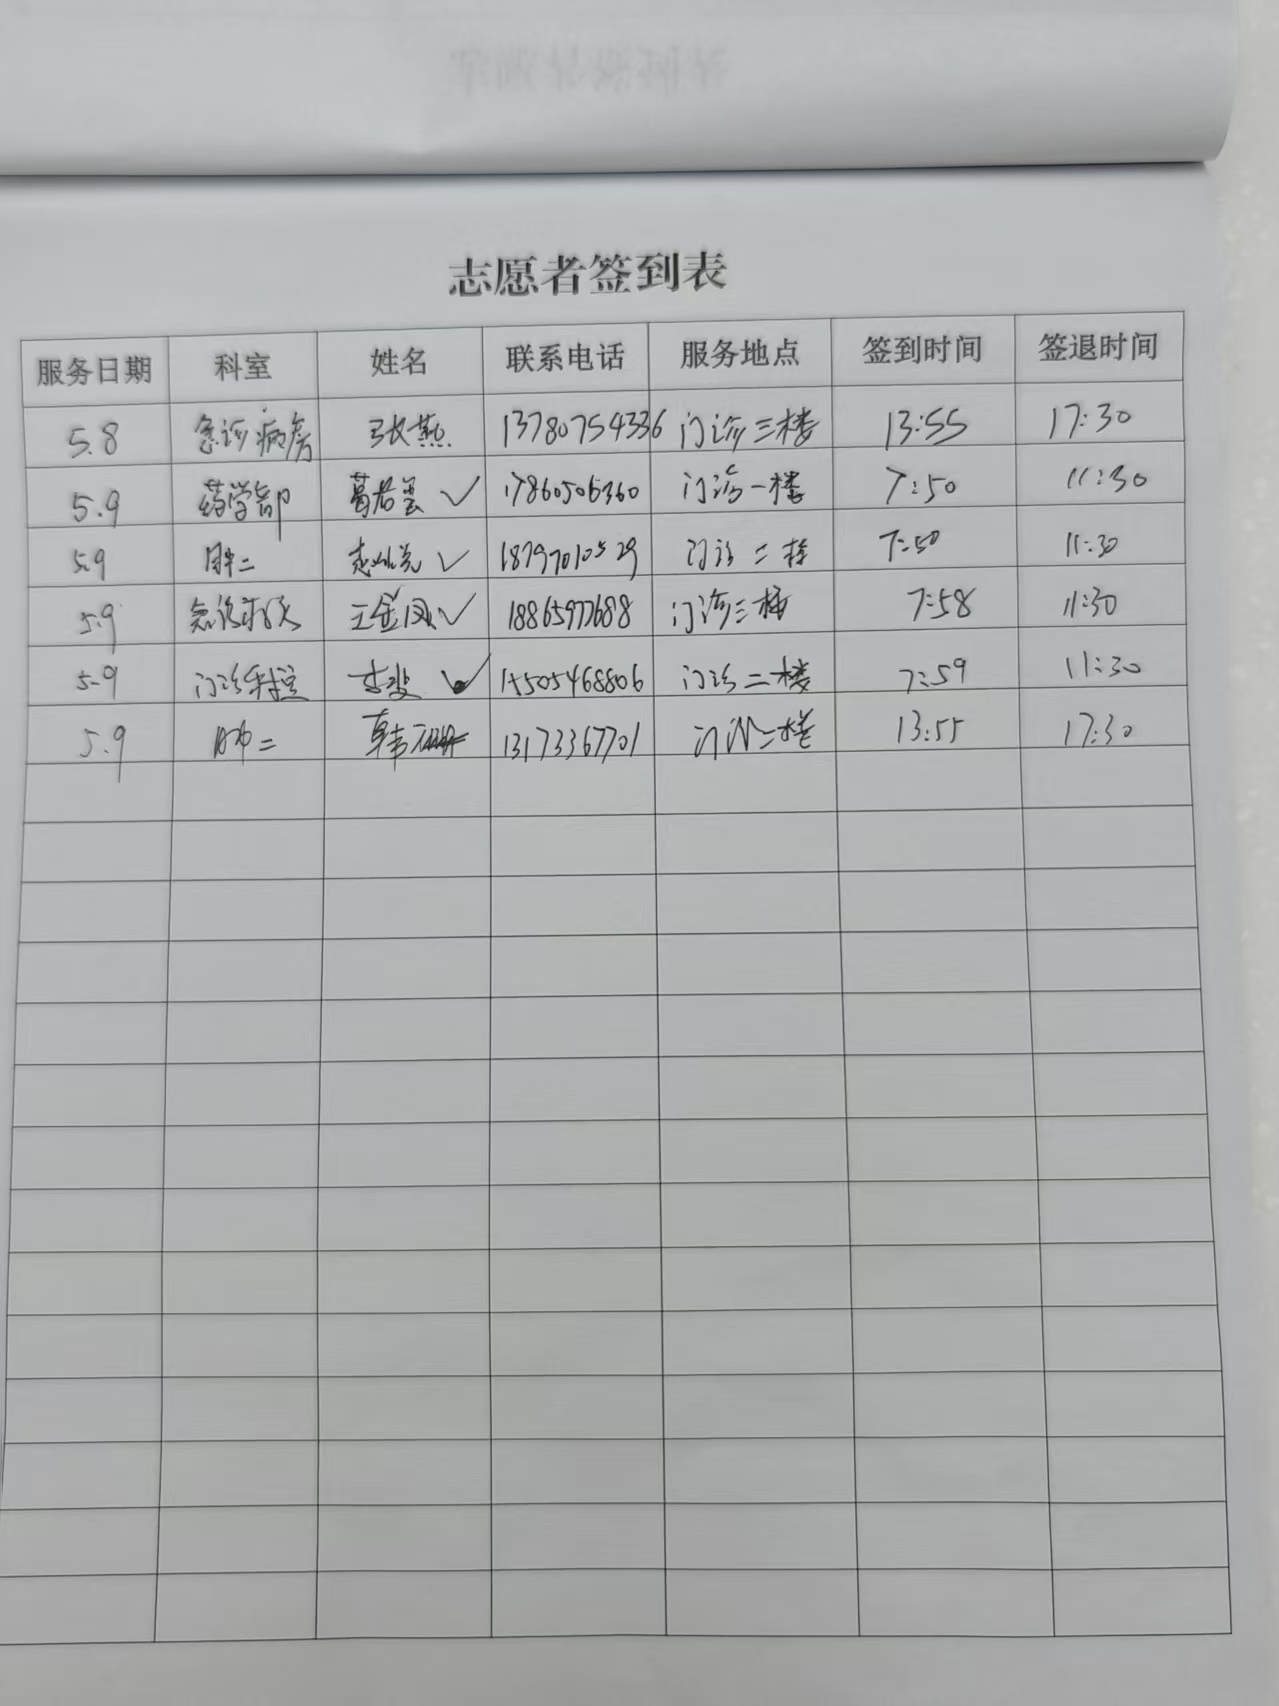 志愿者签到表
服务日期 科室 姓名 联系电话 服务地点 签到时间 签退时间
5.8 急诊病房 张燕 13780754336 门诊三楼 13:55 17:30
5.9 药学部 葛君 ✓ 17860506360 门诊一楼 7:50 11:30
5.9 二 ✓ 18797010529 门诊二楼 7:50 11:30
5.9 急诊 王金凤 ✓ 18865977688 门诊三楼 7:58 11:30
5.9 门诊 李斐 ✓ 15505468806 门诊二楼 7:59 11:30
5.9 二 韩 13173367701 门诊二楼 13:55 17:30